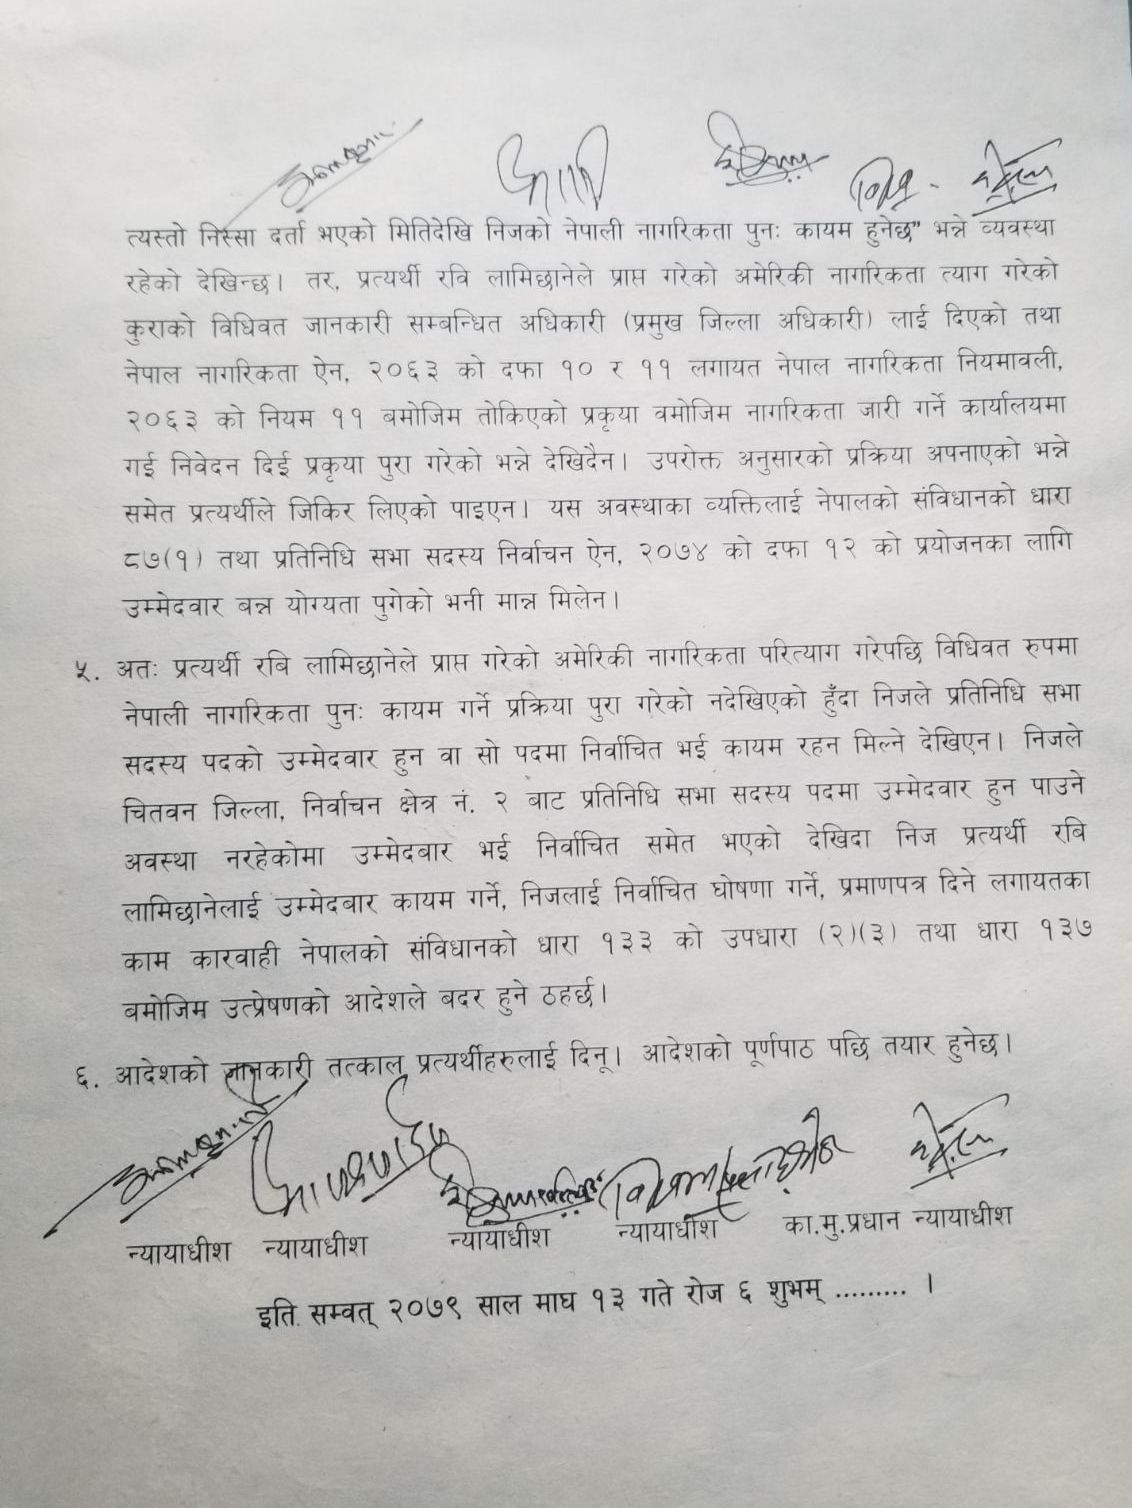 त्यस्तो निस्सा दर्ता भएको मितिदेखि निजको नेपाली नागरिकता पुनः कायम हुनेछ” भन्ने व्यवस्था
रहेको देखिन्छ। तर, प्रत्यर्थी रवि लामिछानेले प्राप्त गरेको अमेरिकी नागरिकता त्याग गरेको
कुराको विधिवत जानकारी सम्बन्धित अधिकारी (प्रमुख जिल्ला अधिकारी) लाई दिएको तथा
नेपाल नागरिकता ऐन, २०६३ को दफा १० र ११ लगायत नेपाल नागरिकता नियमावली,
२०६३ को नियम ११ बमोजिम तोकिएको प्रकृया वमोजिम नागरिकता जारी गर्ने कार्यालयमा
गई निवेदन दिई प्रकृया पुरा गरेको भन्ने देखिदैन। उपरोक्त अनुसारको प्रक्रिया अपनाएको भन्ने
समेत प्रत्यर्थीले जिकिर लिएको पाइएन। यस अवस्थाका व्यक्तिलाई नेपालको संविधानको धारा
८७(१) तथा प्रतिनिधि सभा सदस्य निर्वाचन ऐन, २०७४ को दफा १२ को प्रयोजनका लागि
उम्मेदवार बन्न योग्यता पुगेको भनी मान्न मिलेन।
५. अतः प्रत्यर्थी रबि लामिछानेले प्राप्त गरेको अमेरिकी नागरिकता परित्याग गरेपछि विधिवत रुपमा
नेपाली नागरिकता पुनः कायम गर्ने प्रक्रिया पुरा गरेको नदेखिएको हुँदा निजले प्रतिनिधि सभा
सदस्य पदको उम्मेदवार हुन वा सो पदमा निर्वाचित भई कायम रहन मिल्ने देखिएन। निजले
चितवन जिल्ला, निर्वाचन क्षेत्र नं. २ बाट प्रतिनिधि सभा सदस्य पदमा उम्मेदवार हुन पाउने
अवस्था नरहेकोमा उम्मेदबार भई निर्वाचित समेत भएको देखिदा निज प्रत्यर्थी रबि
लामिछानेलाई उम्मेदबार कायम गर्ने, निजलाई निर्वाचित घोषणा गर्ने, प्रमाणपत्र दिने लगायतका
काम कारवाही नेपालको संविधानको धारा १३३ को उपधारा (२)(३) तथा धारा १३७
बमोजिम उत्प्रेषणको आदेशले बदर हुने ठहर्छ।
६. आदेशको जानकारी तत्काल प्रत्यर्थीहरुलाई दिनू। आदेशको पूर्णपाठ पछि तयार हुनेछ।
न्यायाधीश न्यायाधीश न्यायाधीश न्यायाधीश का.मु.प्रधान न्यायाधीश
इति सम्वत् २०७९ साल माघ १३ गते रोज ६ शुभम् ......... ।